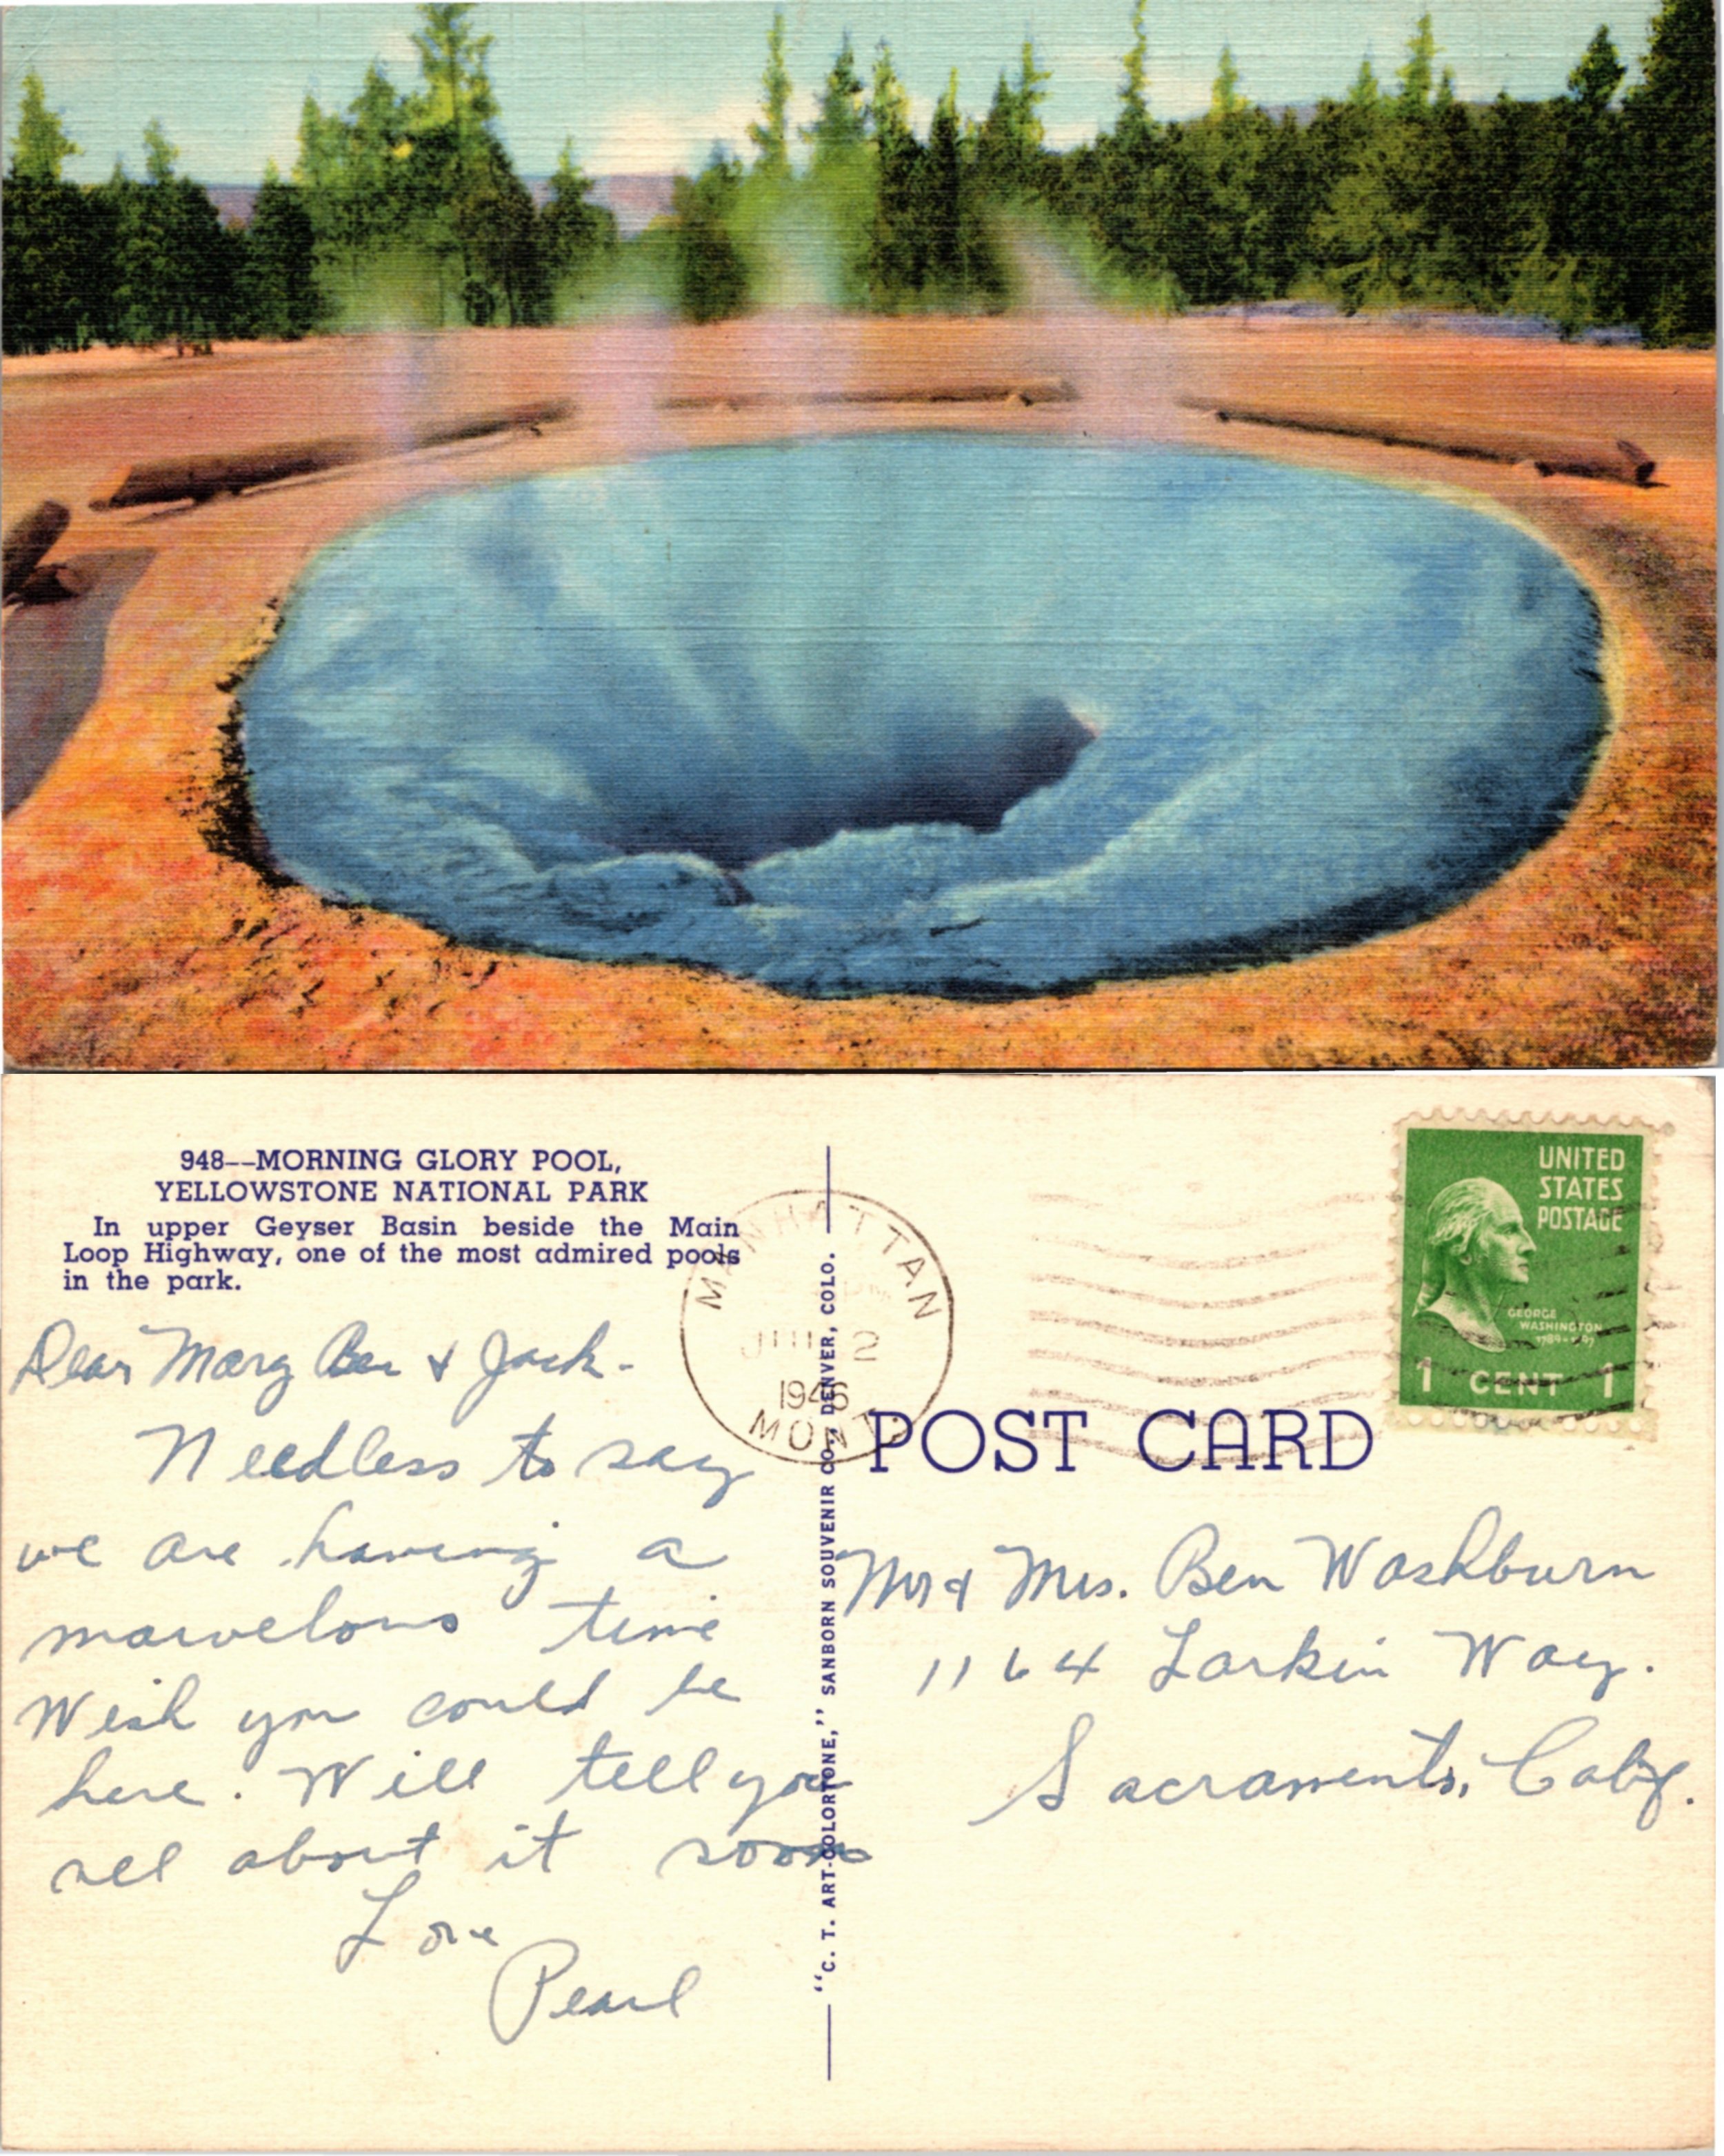 948--MORNING GLORY POOL,
YELLOWSTONE NATIONAL PARK
In upper Geyser Basin beside the Main
Loop Highway, one of the most admired pools
in the park.
Dear Mary Ben & Jack-
Needless to say
we are having a
marvelous time
Wish you could be
here. Will tell you
all about it soon
Love
Pearl
"C. T. ART-COLORTONE," SANBORN SOUVENIR CO., DENVER, COLO.
MANHATTAN
PM
2
1946
MONT.
UNITED
STATES
POSTAGE
GEORGE
WASHINGTON
1789-1797
1 CENT 1
POST CARD
Mr & Mrs. Ben Washburn
1164 Larkin Way.
Sacramento, Calif.